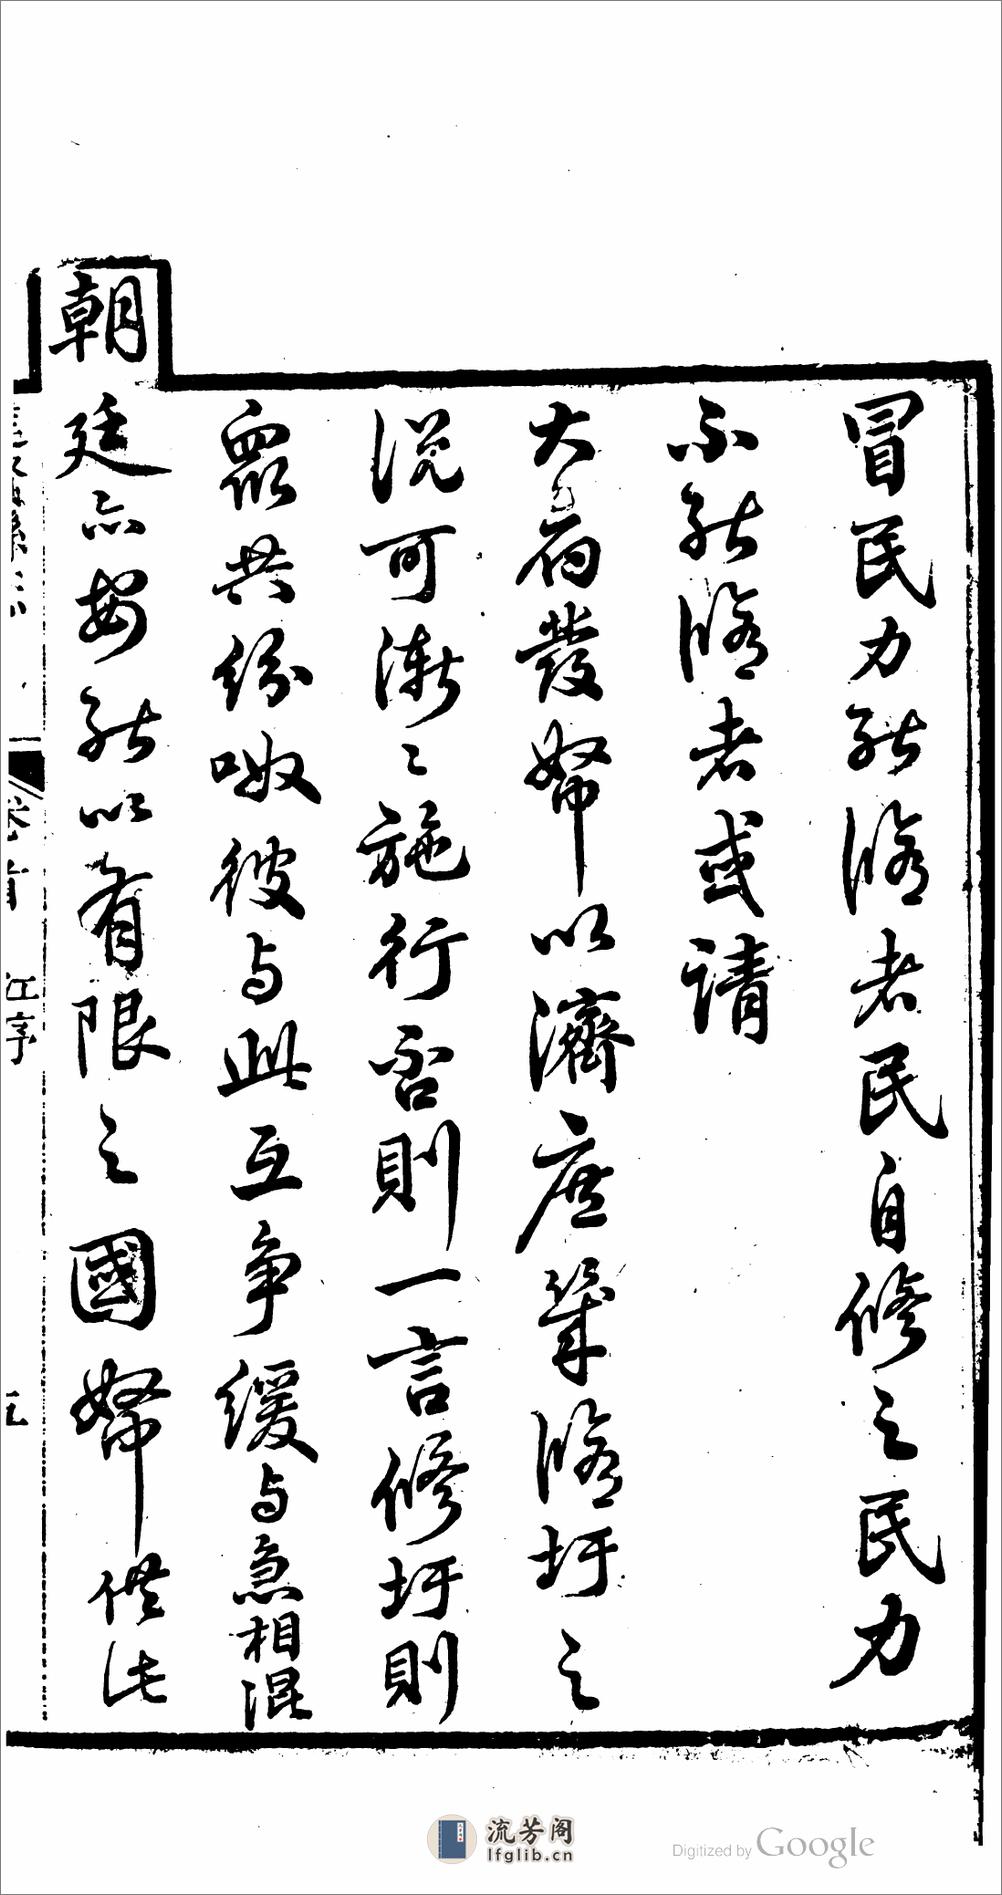 冒民力能脩者民自修之民力
不能脩者或請
大府發帑以濟庶築脩圩之
說可漸〻施行否則一言修圩則
衆共紛呶彼与此互争緩与急相混
朝廷亦安能以有限之國帑供此
卷首 江序
流芳阁
lfglib.cn
Digitized by Google